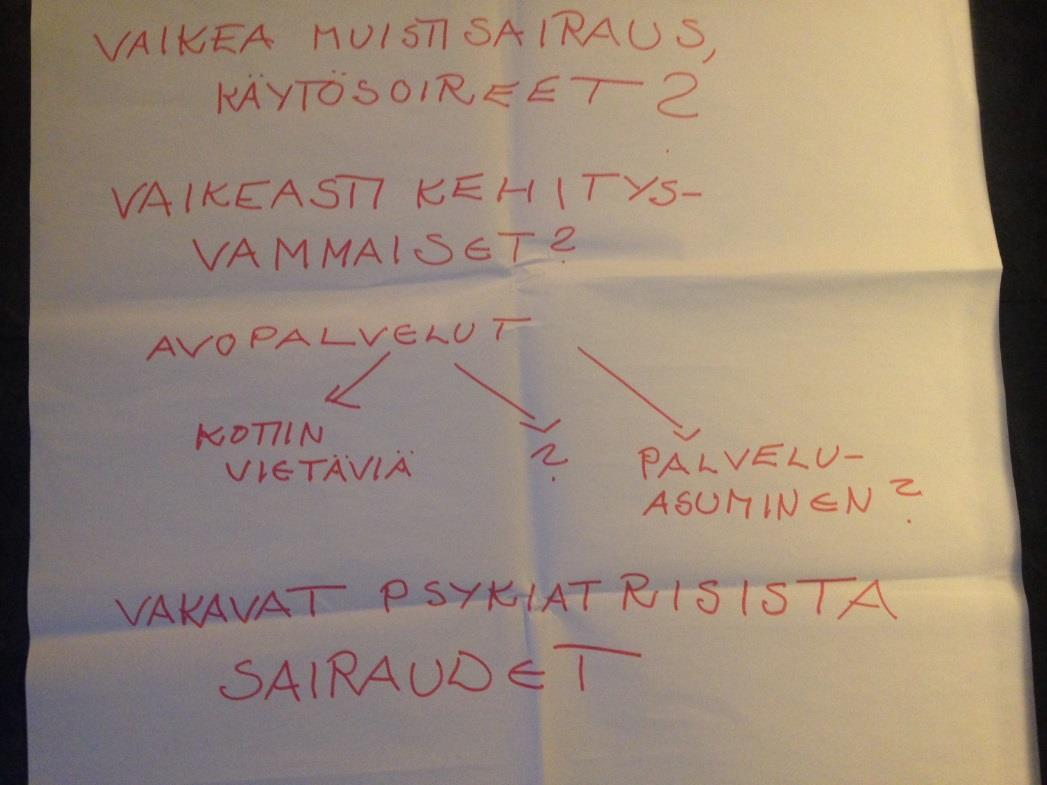 VAIKEA MUISTISAIRAUS,
KÄYTÖSOIREET ?
VAIKEASTI KEHITYS-
VAMMAISET ?
AVOPALVELUT
KOTIIN
VIETÄVIÄ
?
PALVELU-
ASUMINEN ?
VAKAVAT PSYKIATRISISTA
SAIRAUDET